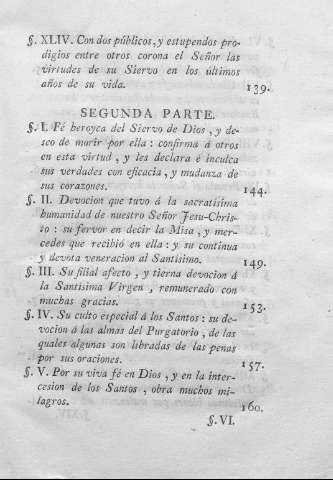 §. XLIV. Con dos públicos, y estupendos pro-
digios entre otros corona el Señor las
virtudes de su Siervo en los últimos
años de su vida. 139.
SEGUNDA PARTE.
§. I. Fé heroyca del Siervo de Dios, y de-
seo de morir por ella: confirma á otros
en esta virtud, y les declara é inculca
sus verdades con eficacia, y mudanza de
sus corazones. 144.
§. II. Devocion que tuvo á la sacratísima
humanidad de nuestro Señor Jesu-Chris-
to: su fervor en decir la Misa, y mer-
cedes que recibió en ella: y su continua
y devota veneracion al Santísimo. 149.
§. III. Su filial afecto, y tierna devocion á
la Santísima Virgen, remunerado con
muchas gracias. 153.
§. IV. Su culto especial á los Santos: su de-
vocion á las almas del Purgatorio, de las
quales algunas son libradas de las penas
por sus oraciones. 157.
§. V. Por su viva fé en Dios, y en la inter-
cesion de los Santos, obra muchos mi-
lagros. 160.
§. VI.